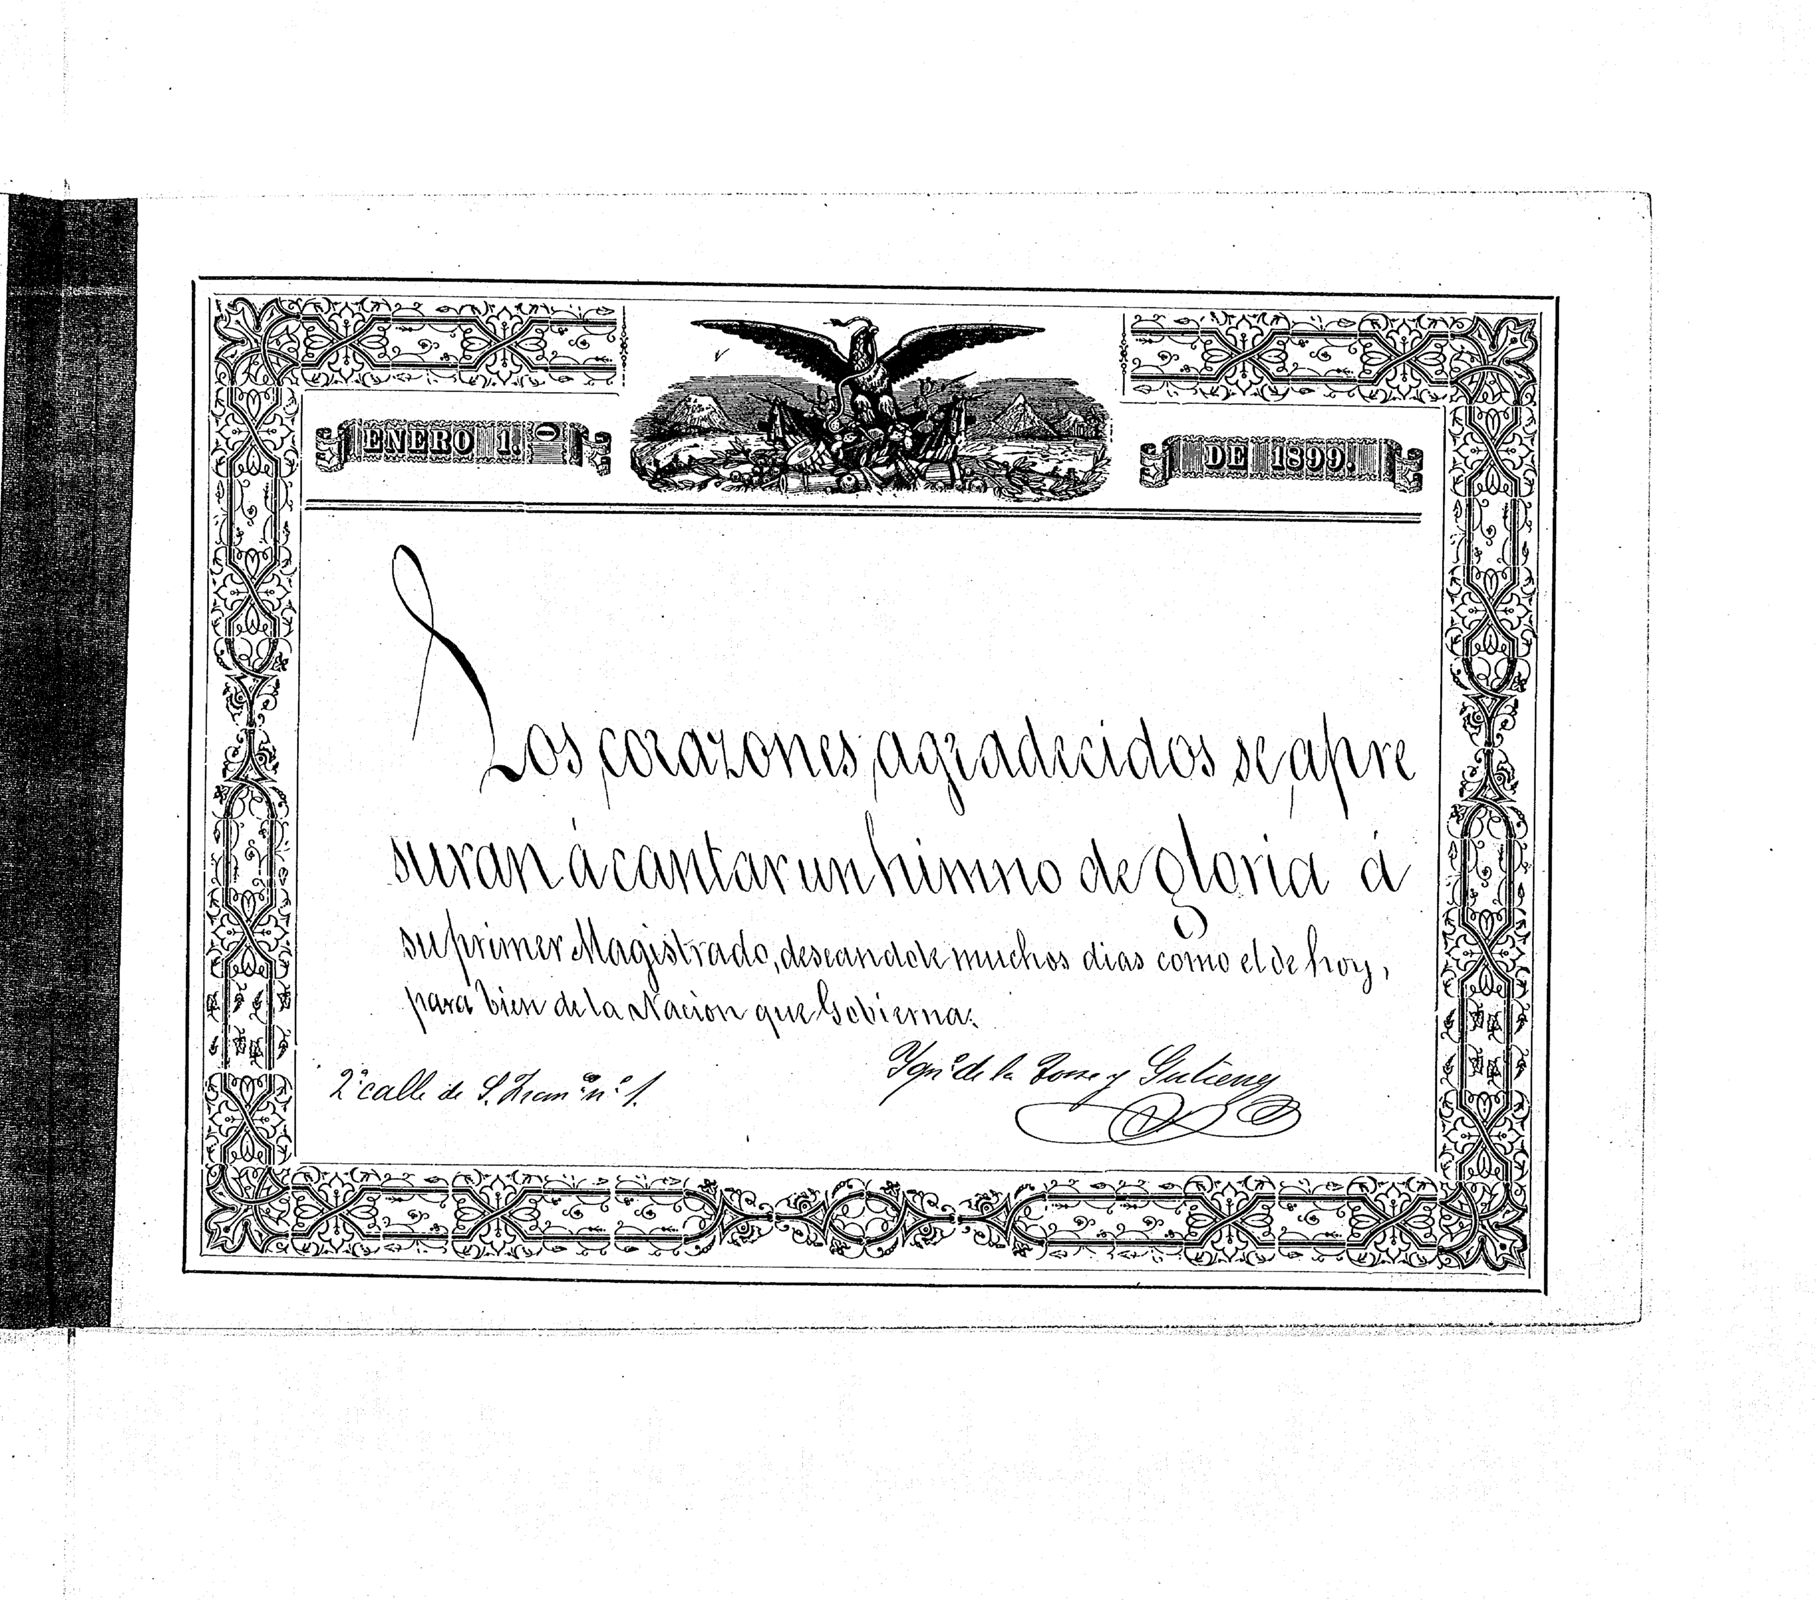 ENERO 1.º DE 1899.
Los corazones agradecidos se apre
suran á cantar un himno de gloria á
su primer Magistrado, deseandole muchos dias como el de hoy,
para bien de la Nacion que Gobierna.
2ª calle de S. Franco nº 1.
Ygnº de la Torre y Gutierrez